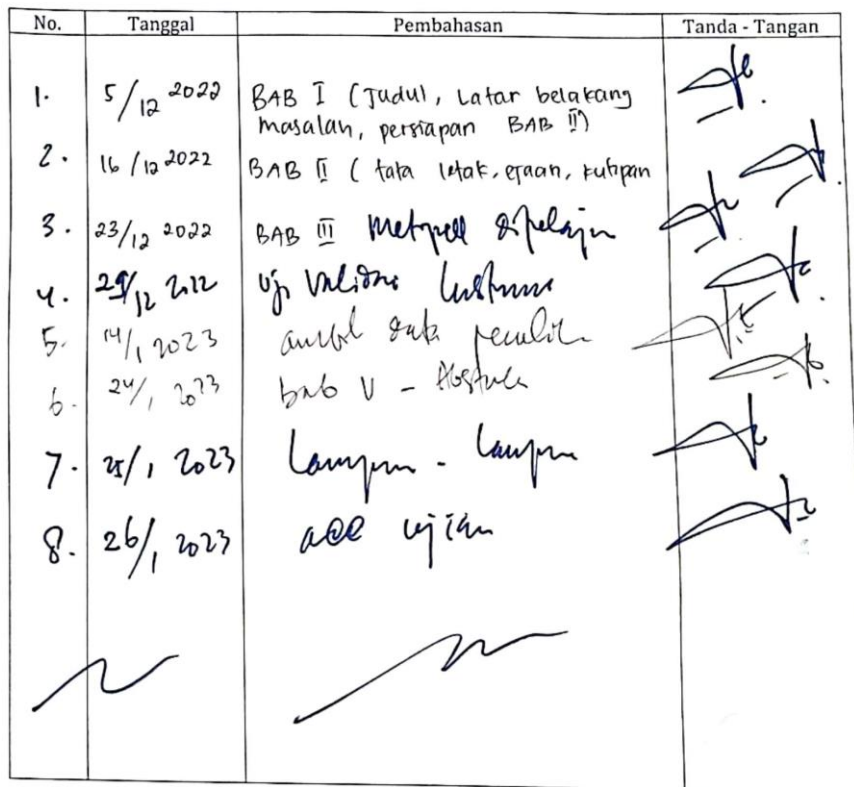 No. Tanggal Pembahasan Tanda - Tangan
1. 5/12 2022 BAB I (Judul, Latar belakang
masalah, persiapan BAB II)
2. 16/12 2022 BAB II ( tata letak, ejaan, kutipan
3. 23/12 2022 BAB III dipelajari
4. 12 2022 Uji Validasi Instrumen
5. 14/1 2023
6. 24/1 2023 bab V - Abstrak
7. 25/1 2023 Lampiran - Lampiran
8. 26/1 2023 acc ujian